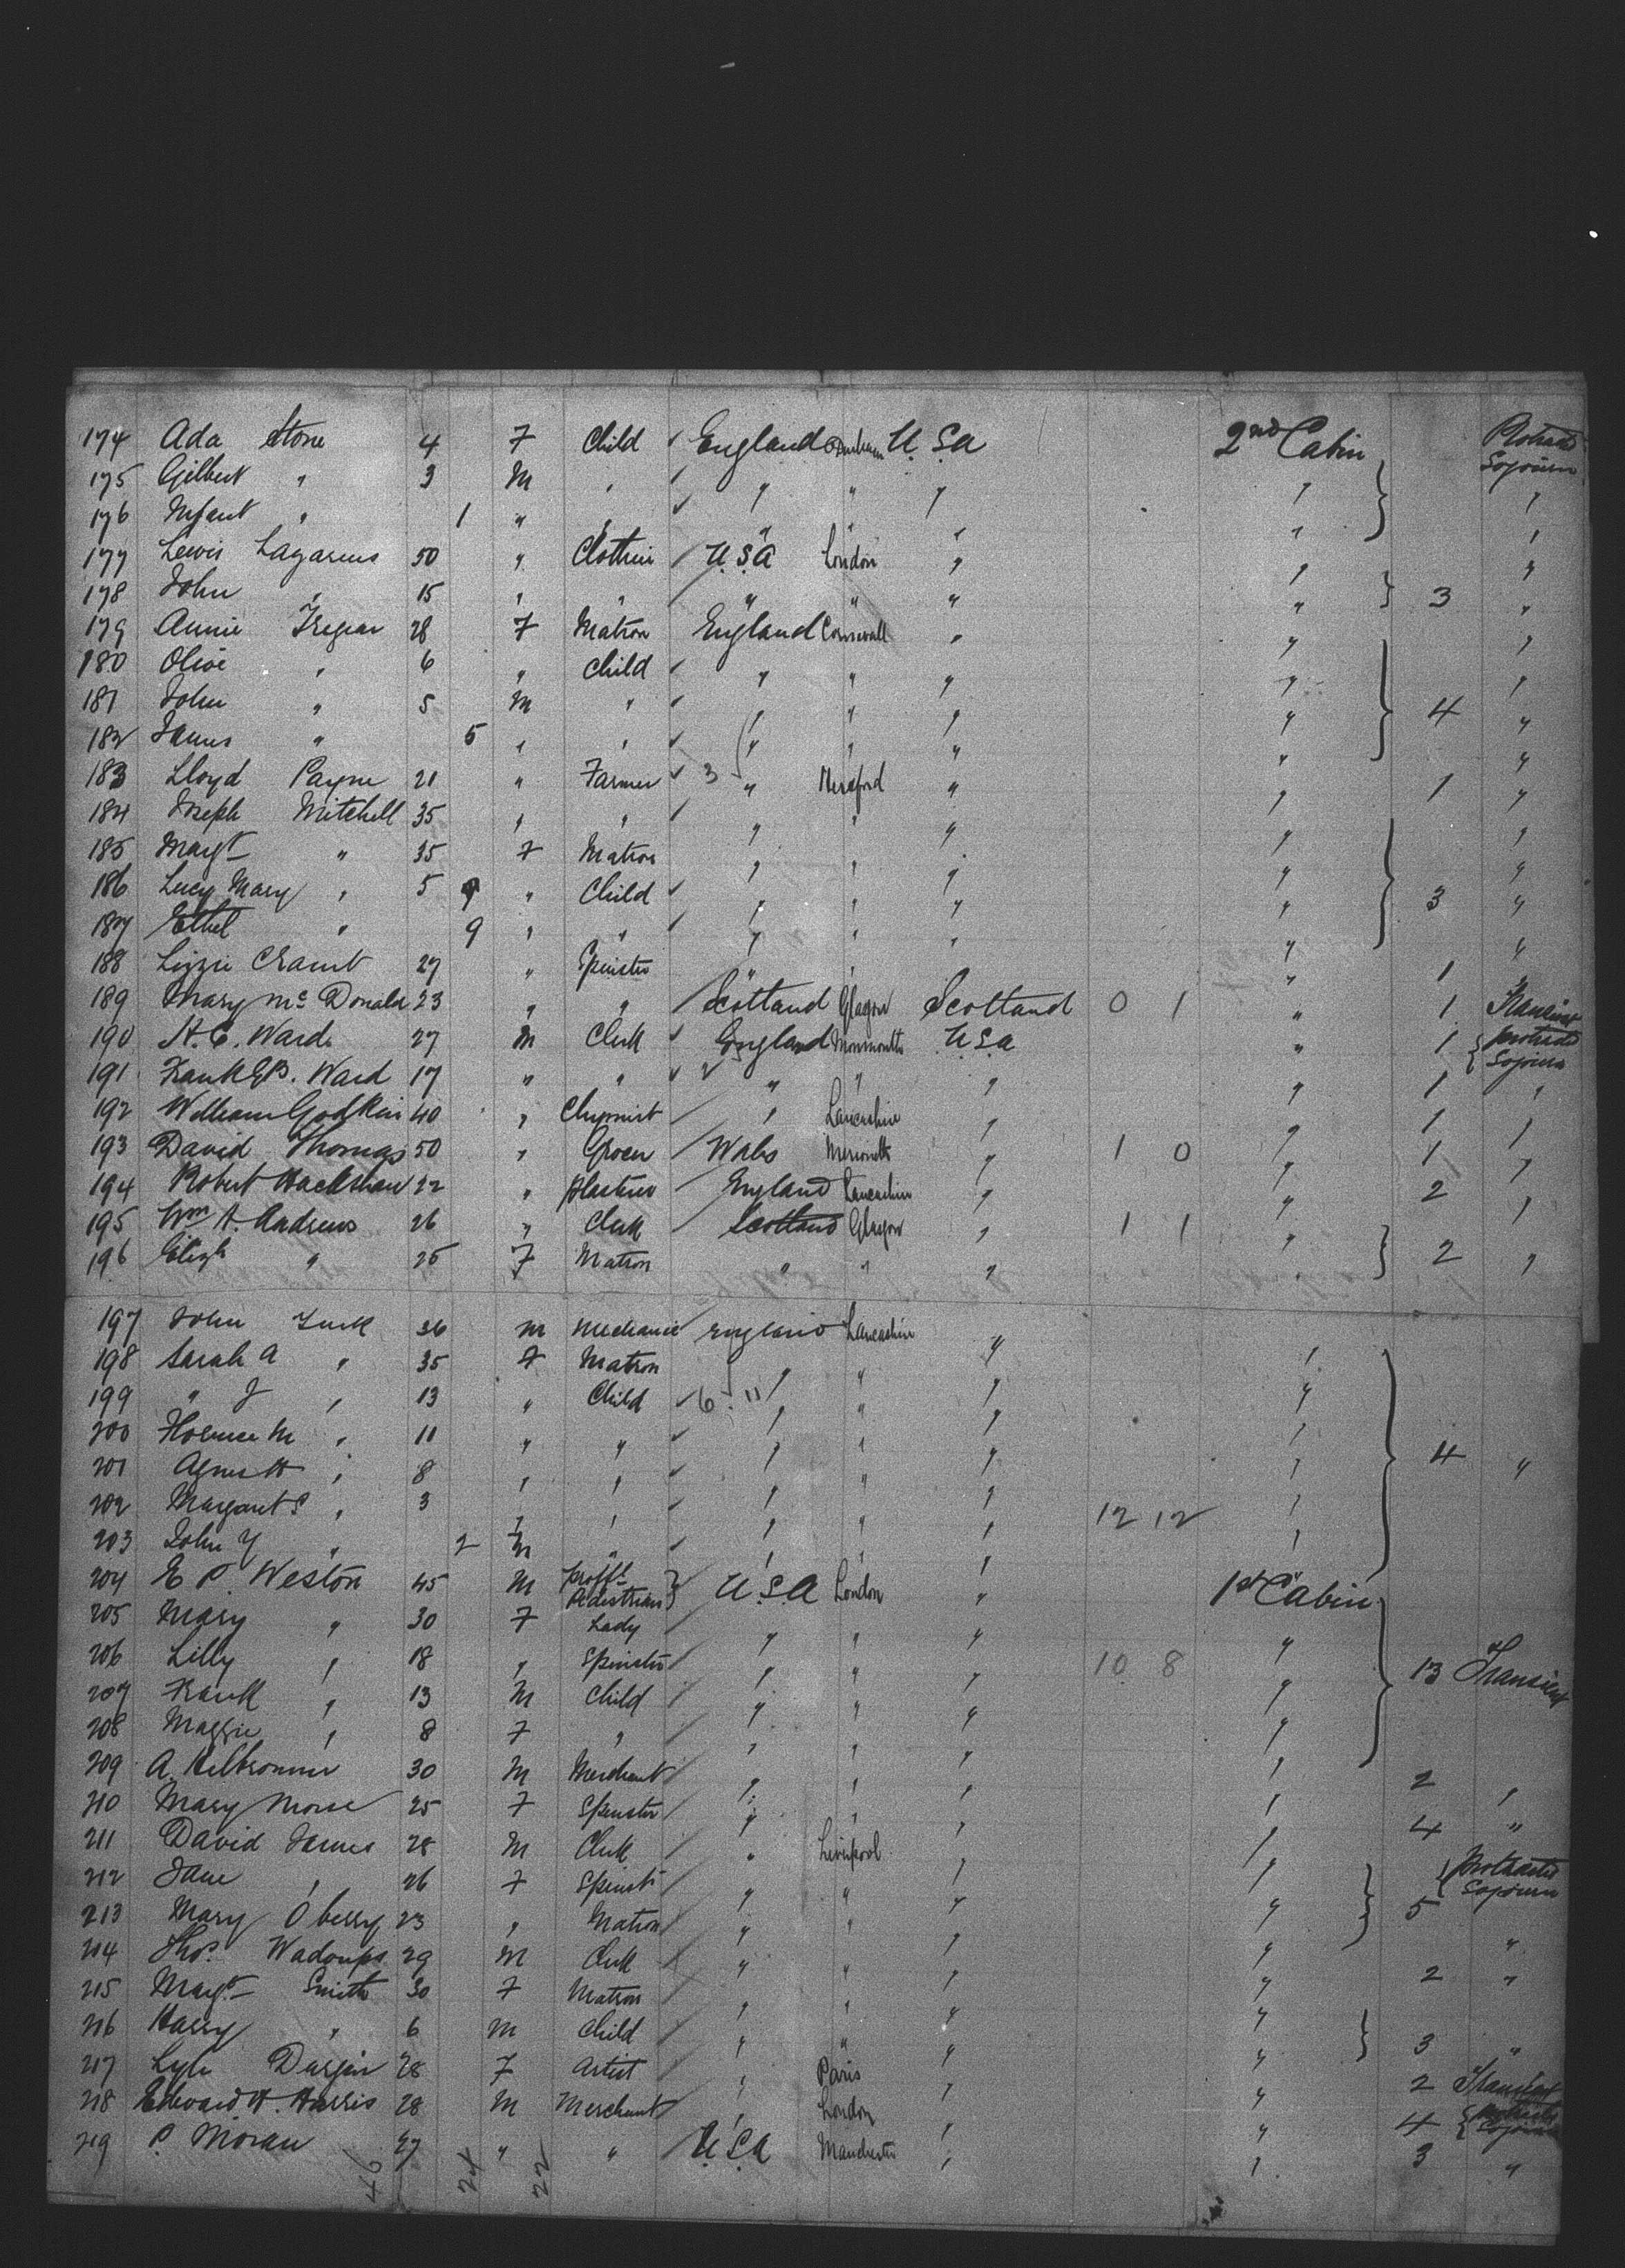 174 Ada Stone 4 F Child ✓ England Durham U.S.A 2nd Cabin Protracted Sojourn
175 Gilbert " 3 M " ✓ " " " " "
176 Infant " 1 " ✓ " " " " "
177 Lewis Lazarus 50 " Clothier / U.S.A London " " "
178 John " 15 " " / " " " " 3 "
179 Annie Tregear 28 F Matron England Cornwall " " "
180 Olive " 6 " Child ✓ " " " " "
181 John " 5 M " ✓ " " " " 4 "
182 James " 5 " " ✓ " " " " "
183 Lloyd Payne 21 " Farmer ✓ 3 " Hereford " " 1 "
184 Joseph Mitchell 35 " " / " " " " "
185 Margt " 35 F Matron " " " " "
186 Lucy Mary " 5 " Child ✓ " " " " 3 "
187 Ethel " 9 " " ✓ " " " " "
188 Lizzie 27 " Spinster " " " 1
189 Mary McDonald 23 " " / Scotland Glasgow Scotland 0 1 " 1 Transient
190 H.C. Ward 27 M Clerk ✓ England Monmouth U.S.A " 1 Protracted Sojourn
191 Frank E.B. Ward 17 " " ✓ " " " " 1 "
192 William Godkin 40 " Chymist / " Lancashire " " 1 "
193 David Thomas 50 " Grocer / Wales Merioneth " 1 0 " 1 "
194 Robert Hackshaw 22 " Plasterer / England Lancashire " " 2 "
195 Wm A. Andrews 26 " Clerk / Scotland Glasgow " 1 1 "
196 Elizh " 25 F Matron " " " " 2 "
197 John 36 M Mechanic England Lancashire "
198 Sarah A " 35 F Matron " " " "
199 " J " 13 " Child ✓ 6 11 " " " "
200 Florence M " 11 " " ✓ " " " "
201 Agnes H " 8 " " ✓ " " " " 4 "
202 Margaret S " 3 " " ✓ " " " 12 12 "
203 John Y " 2 M " ✓ " " " "
204 E P. Weston 45 M Proffl Pedestrian U.S.A London " 1st Cabin
205 Mary " 30 F Lady / " " " "
206 Lilly " 18 " Spinster / " " " 10 8 " 13 Transient
207 Frank " 13 M Child / " " " "
208 Maggie " 8 F " / " " " "
209 A. Heilbronner 30 M Merchant / " " " " 2 "
210 Mary Morse 25 F Spinster / " " " " 4 "
211 David James 28 M Clerk / " Liverpool " " Protracted Sojourn
212 Jane " 26 F Spinst / " " " " 5
213 Mary Oberry 23 " Matron / " " " " "
214 Thos. Wadoups 29 M Clerk / " " " " 2 "
215 Margt Smith 30 F Matron / " " " "
216 Harry " 6 M Child / " " " " 3 "
217 Lyle Durgin 28 F Artist / " Paris " " 2 Transient
218 Edward H. Harris 28 M Merchant / " London " " 4 Protracted Sojourn
219 P. Moran 27 " " / U.S.A Manchester " " 3 "
46 24 22